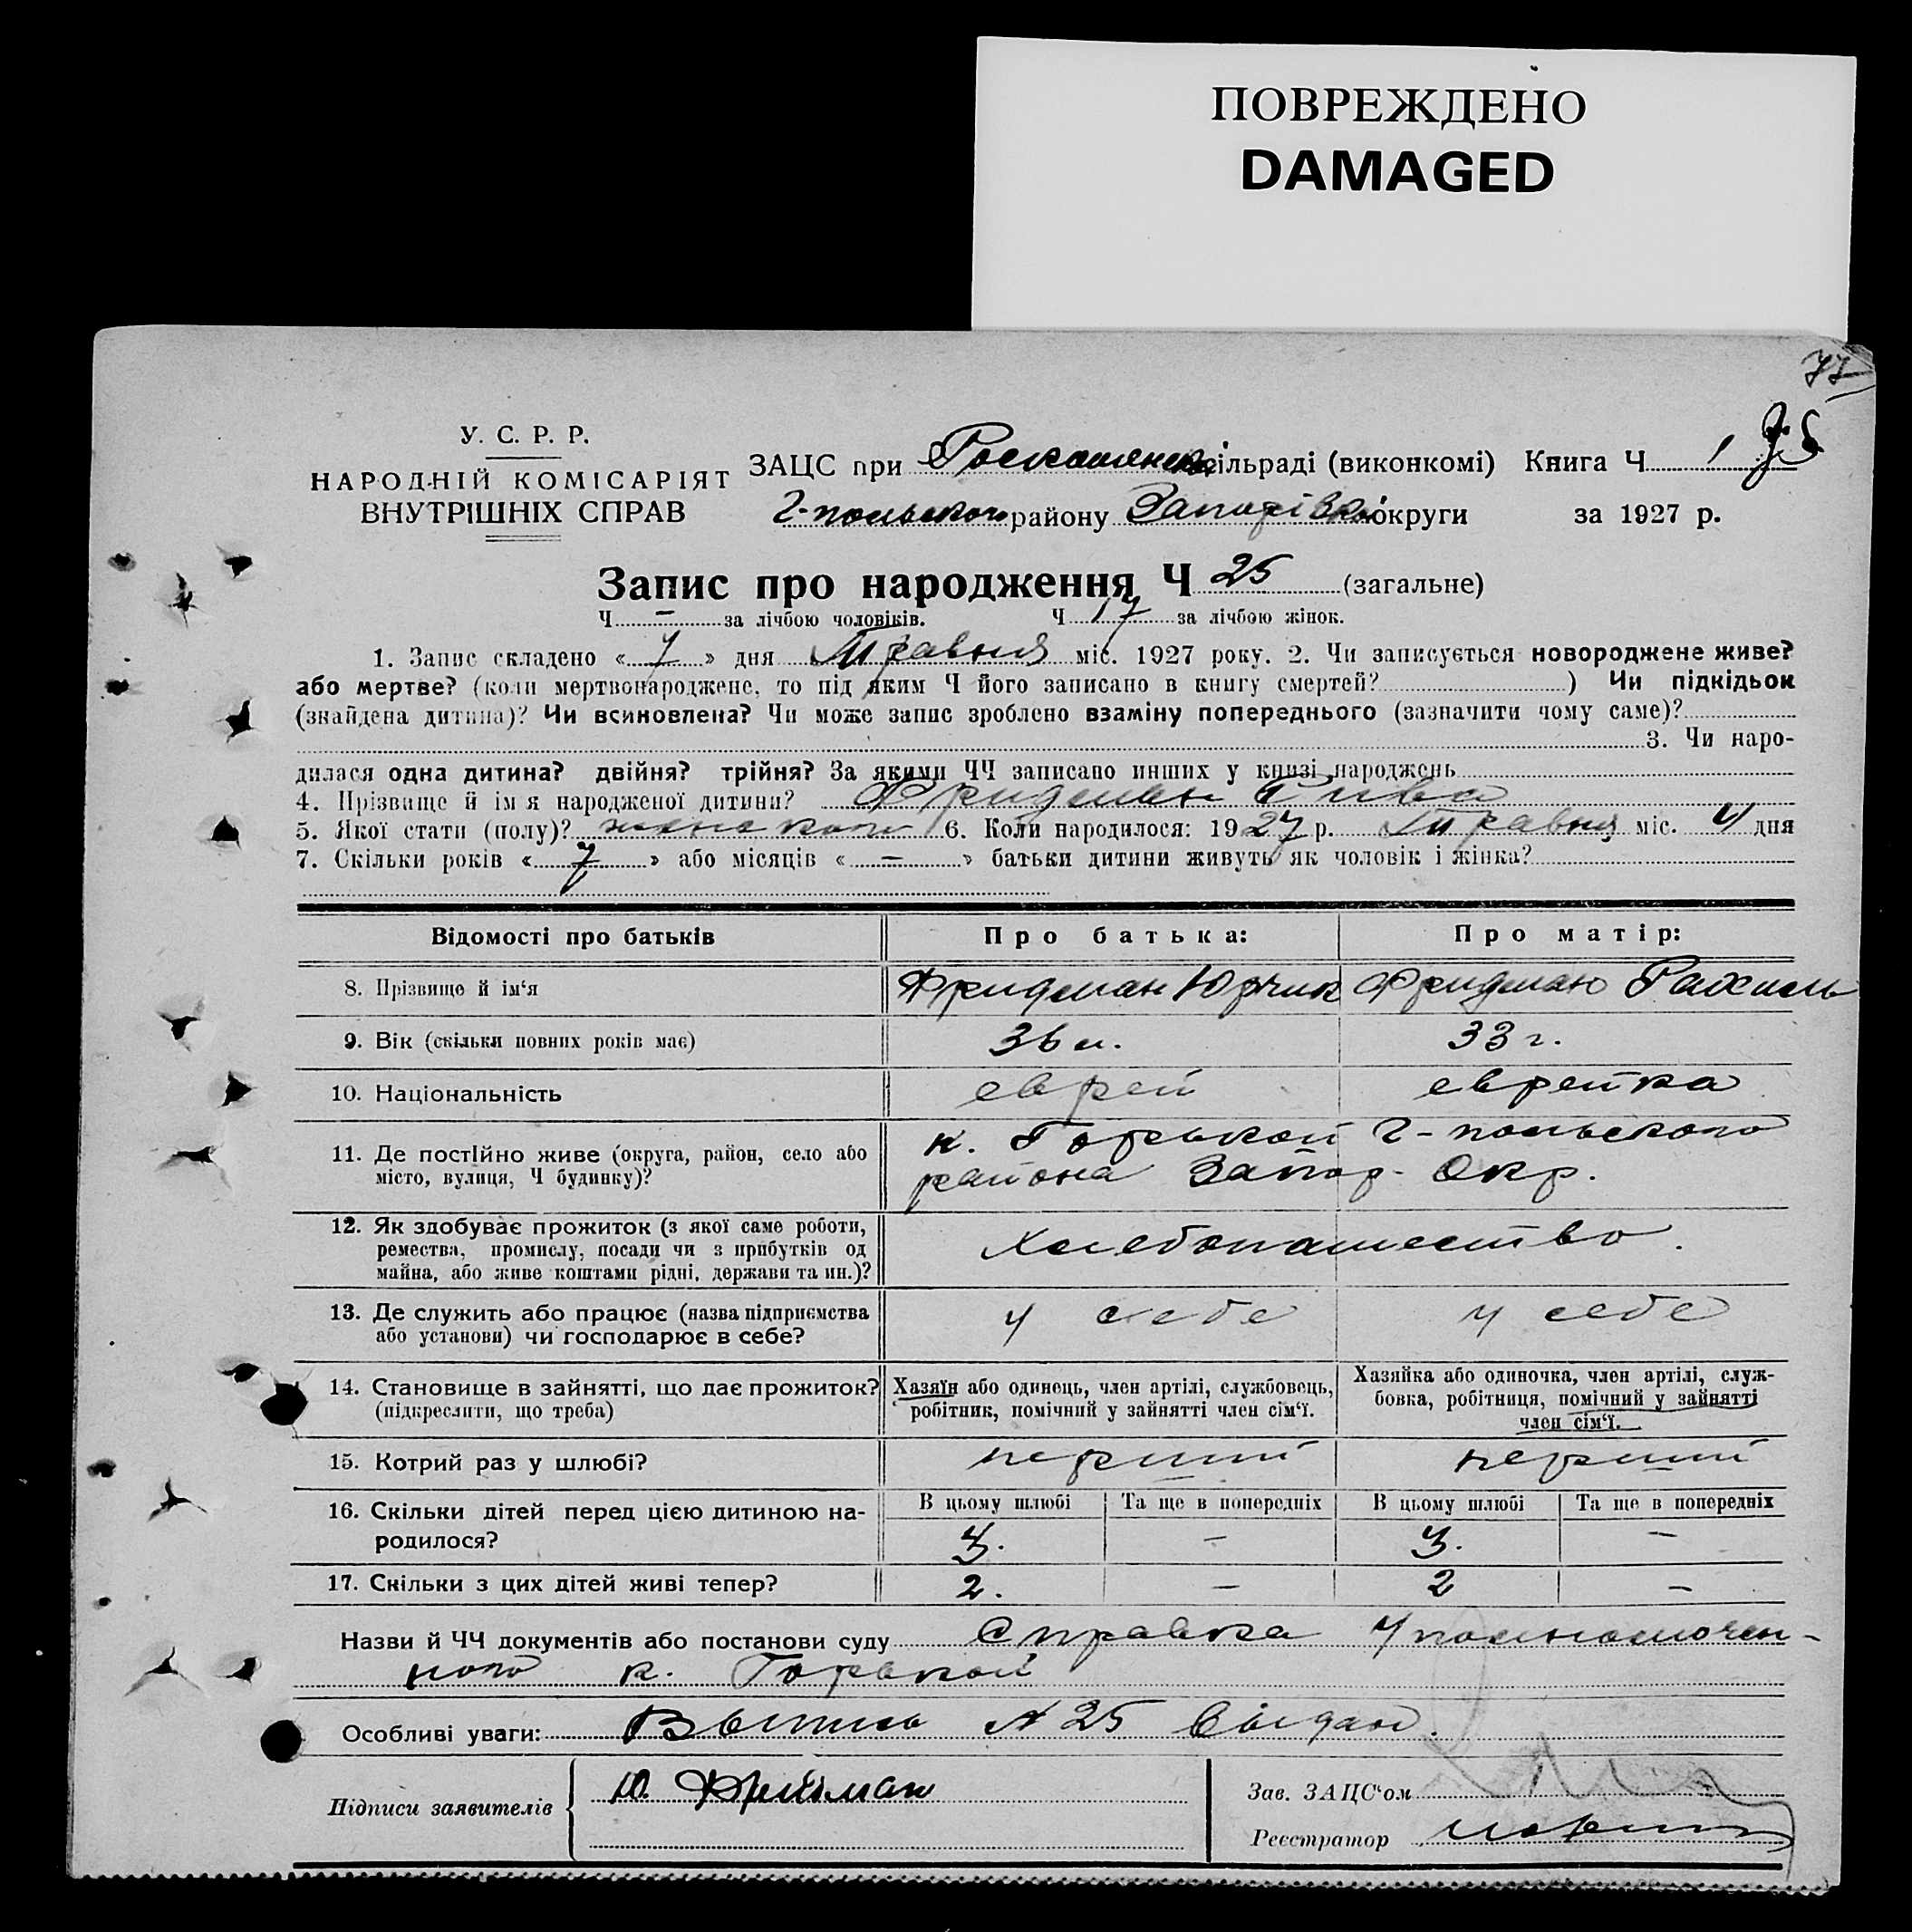 ПОВРЕЖДЕНО
DAMAGED
77
У. С. Р. Р.
НАРОДНІЙ КОМІСАРІЯТ
ВНУТРІШНІХ СПРАВ
ЗАЦС при сільраді (виконкомі) Книга Ч 1
2-польского району округи за 1927 р.
Запис про народження Ч 25 (загальне)
Ч — за лічбою чоловіків. Ч 17 за лічбою жінок.
1. Запис складено « 7 » дня Травня міс. 1927 року. 2. Чи записується новороджене живе?
або мертве? (коли мертвонароджене, то під яким Ч його записано в книгу смертей? ) Чи підкідьок
(знайдена дитина)? Чи всиновлена? Чи може запис зроблено взаміну попереднього (зазначити чому саме)?
3. Чи наро-
дилася одна дитина? двійня? трійня? За якими ЧЧ записано инших у книзі народжень
4. Прізвище й ім я народженої дитини? Фридман Рива
5. Якої стати (полу)? 6. Коли народилося: 1927 р. Травня міс. 4 дня
7. Скільки років « 7 » або місяців « — » батьки дитини живуть як чоловік і жінка?
Відомості про батьків Про батька: Про матір:
8. Прізвище й ім‘я Фридман Юрчик Фридман Рахиль
9. Вік (скільки повних років має) 36 л. 33 г.
10. Національність еврей еврейка
11. Де постійно живе (округа, район, село або
місто, вулиця, Ч будинку)?
к. Горькой 2-польского
района Запор. Окр.
12. Як здобуває прожиток (з якої саме роботи,
ремества, промислу, посади чи з прибутків од
майна, або живе коштами рідні, держави та ин.)?
Хлебопашество.
13. Де служить або працює (назва підприємства
або установи) чи господарює в себе?
у себе у себе
14. Становище в зайнятті, що дає прожиток?
(підкреслити, що треба)
Хазяїн або одинець, член артілі, службовець,
робітник, помічний у зайнятті член сім‘ї.
Хазяйка або одиночка, член артілі, служ-
бовка, робітниця, помічний у зайнятті
член сім‘ї.
15. Котрий раз у шлюбі? перший перший
16. Скільки дітей перед цією дитиною на-
родилося?
В цьому шлюбі Та ще в попередніх В цьому шлюбі Та ще в попередніх
3. — 3. —
17. Скільки з цих дітей живі тепер? 2. — 2 —
Назви й ЧЧ документів або постанови суду Справка Уполномочен-
ного к. Горькой
Особливі уваги: Выпись № 25 выдан.
Підписи заявителів Ю. Фридман
Зав. ЗАЦС‘ом
Реєстратор